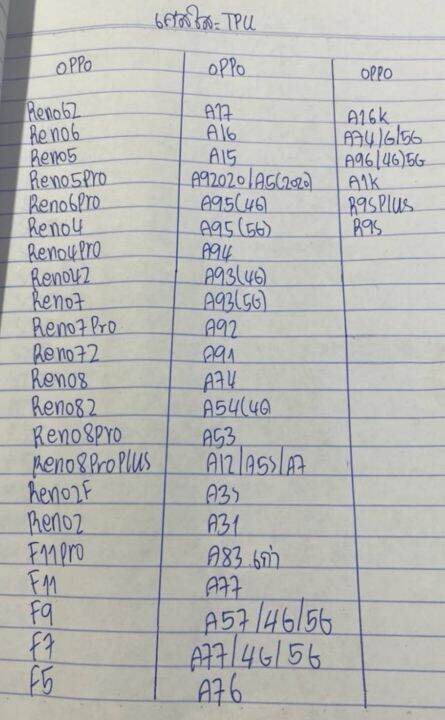 เคสใส TPU
OPPO OPPO OPPO
Reno6Z A17 A16K
Reno6 A16 A74/G/5G
Reno5 A15 A96(4G)5G
Reno5Pro A92020/A5(2020) A1K
Reno6Pro A95(4G) R9SPlus
Reno4 A95(5G) R9s
Reno4Pro A94
Reno4Z A93(4G)
Reno7 A93(5G)
Reno7Pro A92
Reno7Z A91
Reno8 A74
Reno8Z A54(4G
Reno8Pro A53
Reno8ProPlus A12/A5s/A7
Reno2F A3s
Reno2 A31
F11Pro A83 เก่า
F11 A77
F9 A57/4G/5G
F7 A77/4G/5G
F5 A76